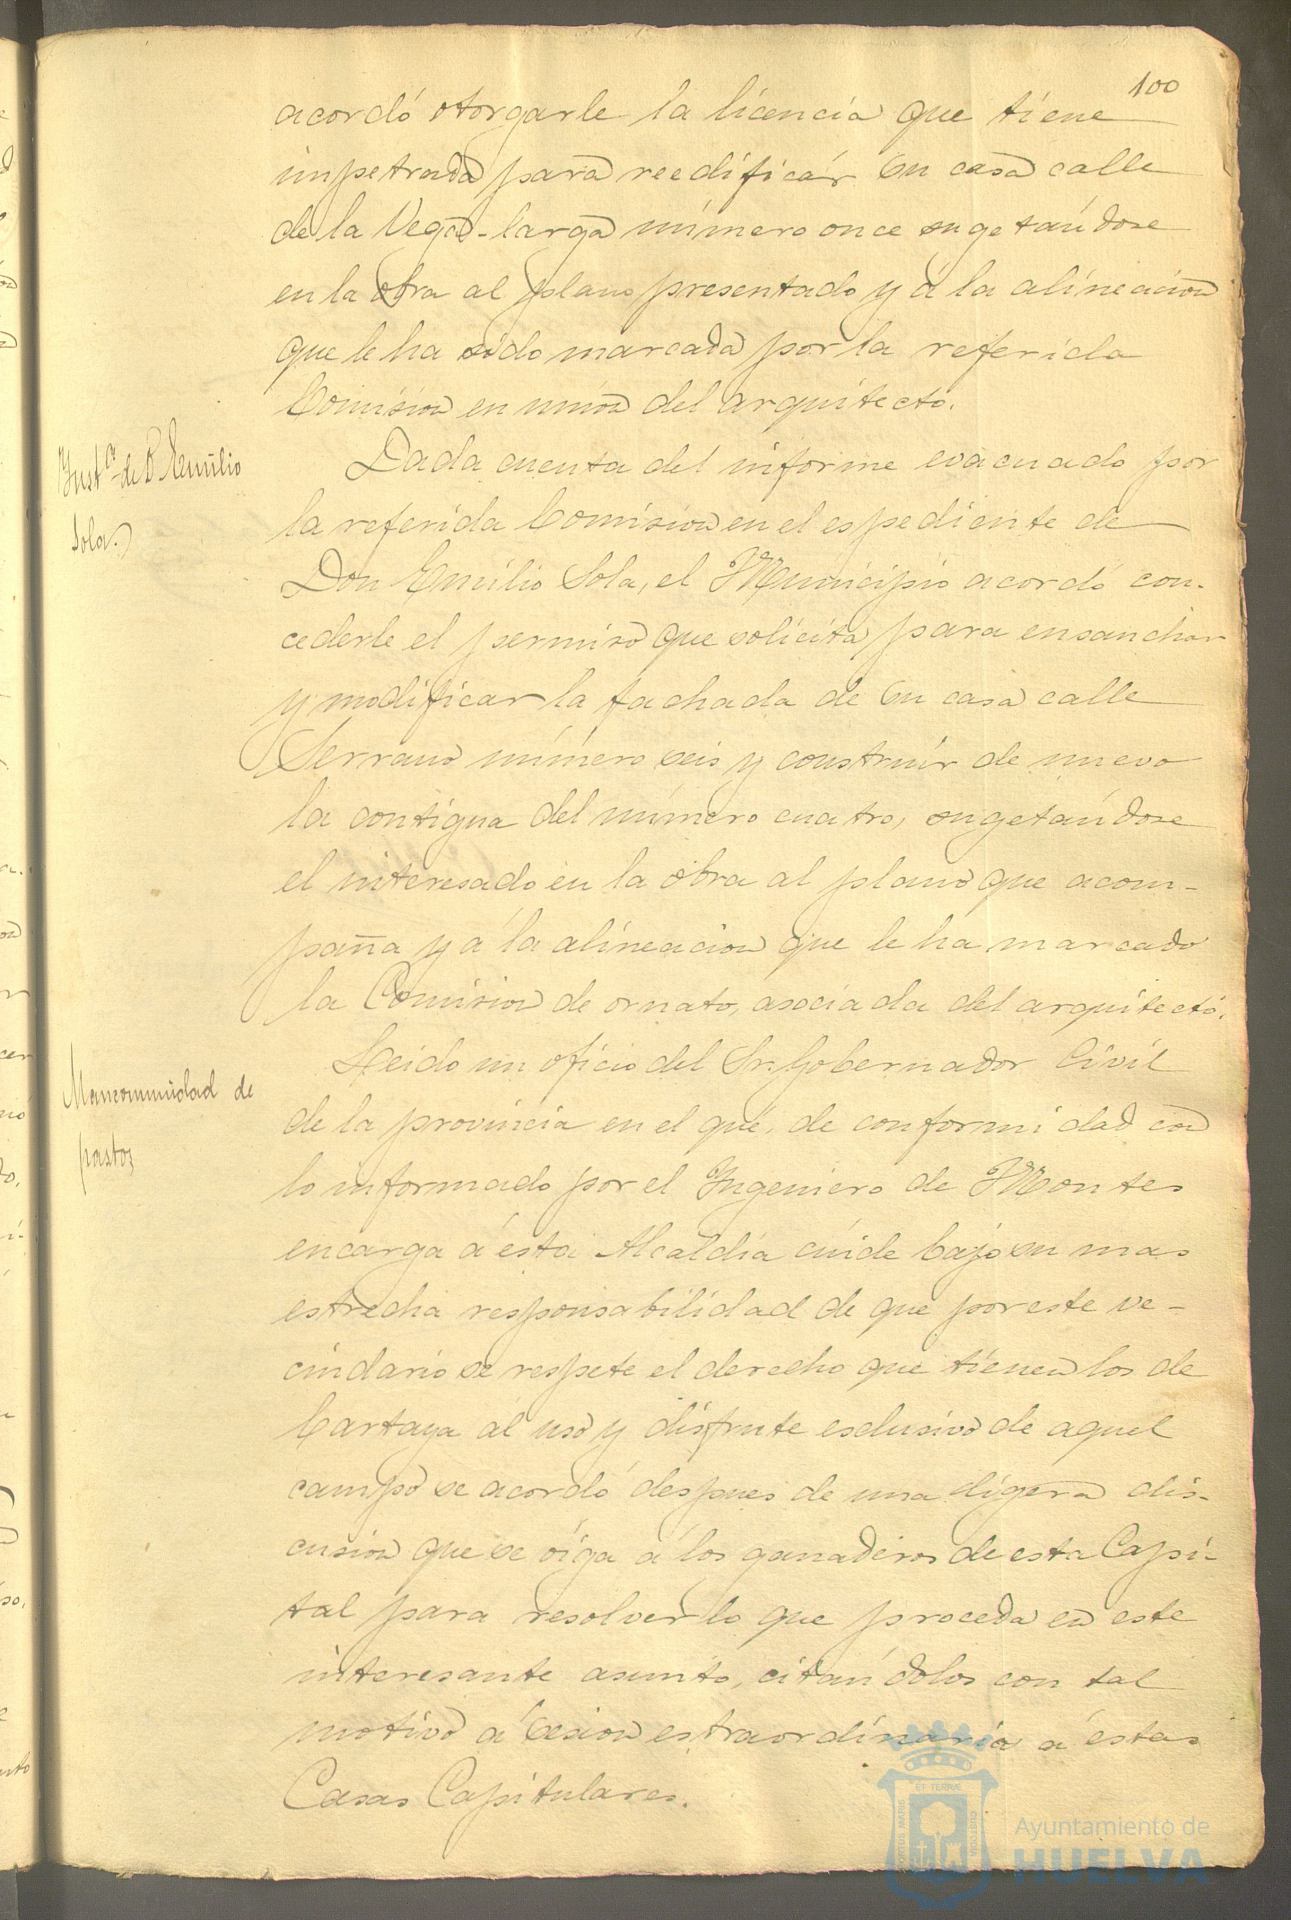 100
acordó otorgarle la licencia que tiene
impetrada para reedificár su casa calle
de la Vega-larga número once sugetándose
en la obra al plano presentado y á la alineacion
que le ha sido marcada por la referida
Comision en union del arquitecto.
Inst.ª de D. Emilio
Sola.
Dada cuenta del informe evacuado por
la referida Comision en el espediente de
Don Emilio Sola, el Municipio acordó con-
cederle el permiso que solicita para ensanchar
y modificar la fachada de su casa calle
Serrano número seis y construir de nuevo
la contigua del número cuatro, sugetándose
el interesado en la obra al plano que acom-
paña y á la alineacion que le ha marcado
la Comision de ornato, asociada del arquitecto.
Mancomunidad de
pastos
Leido un oficio del Sr. Gobernador Civil
de la provincia en el que, de conformidad con
lo informado por el Ingeniero de Montes
encarga á ésta Alcaldía cuide bajo su mas
estrecha responsabilidad de que por este ve-
cindario se respete el derecho que tienen los de
Cartaya al uso y disfrute esclusivo de aquel
campo se acordó despues de una ligera dis-
cusion que se oiga á los ganaderos de esta Capi-
tal para resolver lo que proceda en este
interesante asunto, citándolos con tal
motivo á sesion estraordinaria á éstas
Casas Capitulares.
PORTUS MARIS ET TERRÆ CUSTODIA
Ayuntamiento de
HUELVA